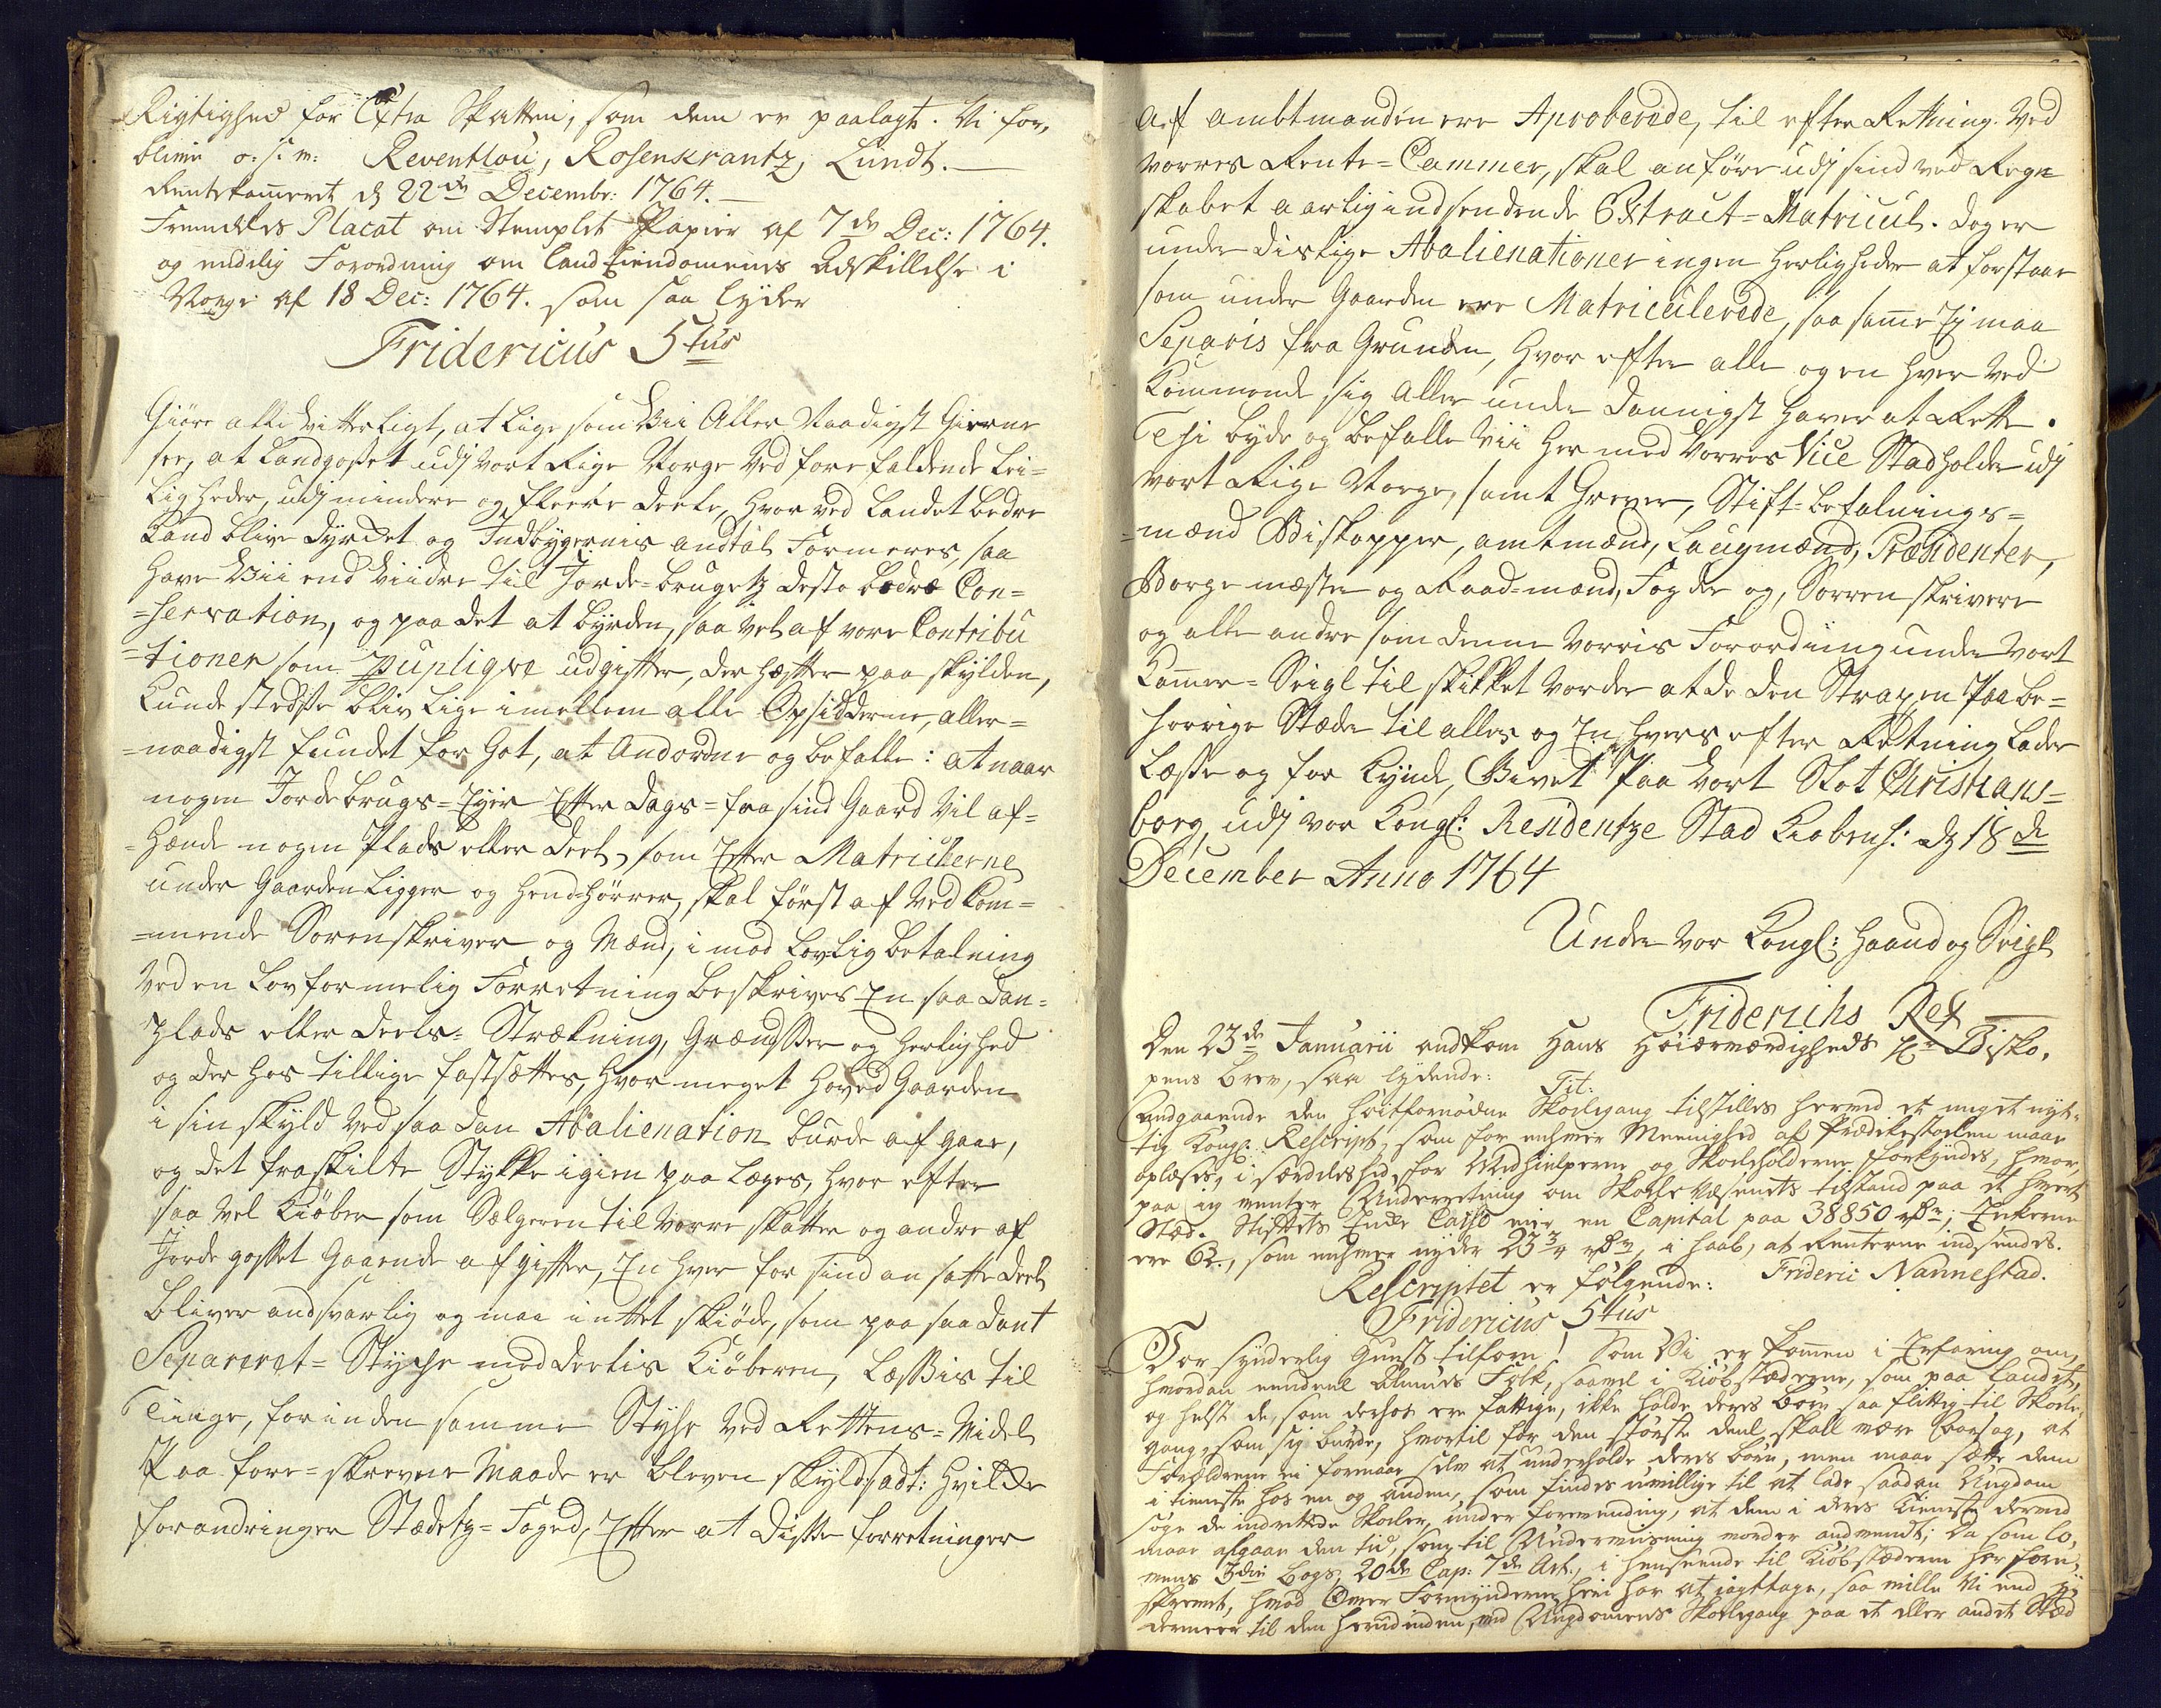 Rigtighed for Extra Skatten, som dem er paalagt. Vi for,
blive o: s: v: Reventlou, Rosenkrantz, Lundt.
Rentekammeret d 22de Decembr: 1764.
Fremdeles Placat om Stemplet Papier af 7de Dec: 1764.
og endelig Forordning om Land Eiendomenes Adskillelse i
Norge af 18 Dec: 1764. som saa lyder
Fridericus 5tus
Giöre alle Vitterligt, at lige som Vii Aller Naadigst Gierne
see, at Landgodset udj vort Rige Norge ved fore faldende Lei=
ligheder, udj mindere og fleere deele, hvor ved Landet bedre
kand blive dyrcket og Indbyggernis andtal Formeres, saa
have Vii end viidere til Jorde=brugetz desto bedre Con=
=servation, og paa det at byrden, saa vel af vore Contribu
=tioner som Pupliqve udgifter, der hæfter paa skylden,
kunde stedse bliv lige imellem alle Opsidderne, aller=
=naadigst fundet for Got, at Andordne og befalle: at naar
nogen Jordebrugs=Eyer Efter dags=fra sind Gaard vil af=
=hænde nogen Plads eller deel, som Efter Matriculerne
under Gaarden ligger og hendhörrer, skal först af Vedkom=
=mende Sorenskriver og Mænd, imod lovlig betalning
ved en lovformelig Forretning beskrives En saa dan=
plads eller deels=Strækning, Grændser og herlighed
og der hos tillige fastsættes, hvor meget Hoved Gaarden
i sin skyld ved saa dan Abalienation burde afgaae,
og det fraskilte Stykke igien paa læges, hvor efter
saa vel Kiöber som Sælgeren til vorre skatter og andre af
Jorde godset Gaaende afgifter, En hver for sind an satte deel
bliver andsvarlig og maa intet skiöde, som paa saa dant
Separeret=Stycke meddeelis Kiöberen, læssis til
Tinge, forinden samme Stycke ved Rettens=Midel
Paa fore=skrevne Maade er bleven skyldsadt: hvilcke
forandringer Stædetz=Foged, Efter at disse forretninger
af ambtmanden ere Aproberede, til efter Retning. Ved
vorres Rente=Cammer, skal anföre udj sind ved Regn=
skabet aarlig indsendende Extract=Matricul. dog er
under deslige Abalienationer ingen herligheder at forstaae
som under Gaarden ere Matriculerede, saa same Ej maa
Separis fra Grunden, hvor efter alle og en hver ved
kommende sig aller under dannigst haver at Rette.
Thi byde og befalle Vii her med Vorres Vice Stadholder udj
vort Rige Norge, samt Grever, Stift=befalnings=
=mænd Biskopper, amtmænd, Laugmænd, Præsidenter,
Borgemæster og Raad=mænd, Fogder og, Sorrenskrivere
og alle andre som denne Vorris Forordning under Vort
Kamer=Seigl tilskikket vorder at de den Straxen Paa be=
hörrige Stæder til alles og En hvers efter Retning lader
læsse og for kynde, Givet Paa Vort Slot Christians=
borg, udj vor Kongl: Residentze Stad Kiobenh: d 18de
December Anno 1764
Under Vor Kongl: Haand og Seigl
Friderichs Rex
Den 23de Januarii andkom Hans Höiærværdigheds Hr Bisko,
pens Brev, saa lydende: Tit:
Andgaaende den höitfornödne Skolegang tilstilles herved et meget nyt=
tig Kongl: Rescript, som for enhver Meenighed af Prædikestoelen maae
oplæses, i særdeleshed for Medhielperne og Skoleholderne forkyndes, hvor,
paa jeg venter Underretning om Skole Væsenets tilstand paa et hvert
Stæd. Stiftets Enke Casse eier en Capital paa 38850 rdr; Enkerne
ere 62, som enhver nyder 23¾ rdr, i haab, at Renterne indsendes.
Rescriptet er fölgende: Frideric Nannestad.
Fridericus 5tus
Vor synderlig Gunst tilforn! Som Vi er kommen i Erfaring om,
hvordan eendeel Almues Folk, saavel i Kiöbstæderne, som paa Landet,
og helst de, som derhos ere fattige, ikke holde deres Börn saa flittig til Skole,
gang, som sig burde, hvortil for den störste deel skall være Aarsag, at
Forældrene ei formaae selv at underholde deres börn, men maae sætte dem
i tieneste hos en og anden, som findes uvillige til at lade saadan Ungdom
söge de indrettede Skoler, under forevending, at dem i deres tieneste derved
maae afgaae den tid, som til Underviisning vorder andvendt; Da som Lo,
vens 3die Bogs 20de Cap: 7de Art:, i henseende til Kiöbstæderne herforn,
skrevet, hvad Over Formynderne heri har at jagttage, saa ville Vi end y,
dermeer til den herudinden, ved Ungdomens Skolegang paa et eller andet Stæd